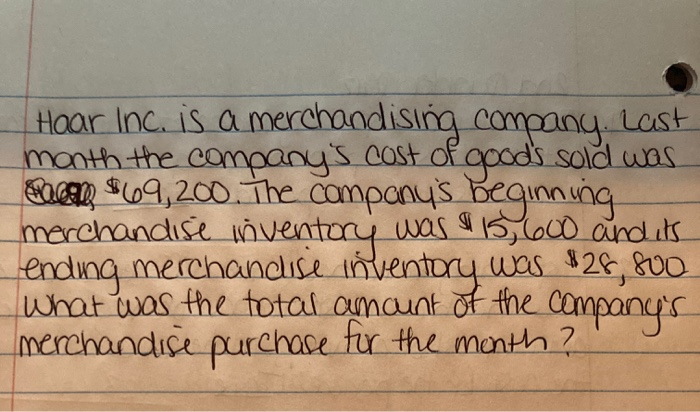 Haar Inc. is a merchandising company. Last
month the company's cost of goods sold was
$69,200. The company's beginning
merchandise inventory was $15,600 and its
ending merchandise inventory was $28,800
What was the total amount of the company's
merchandise purchase for the month?